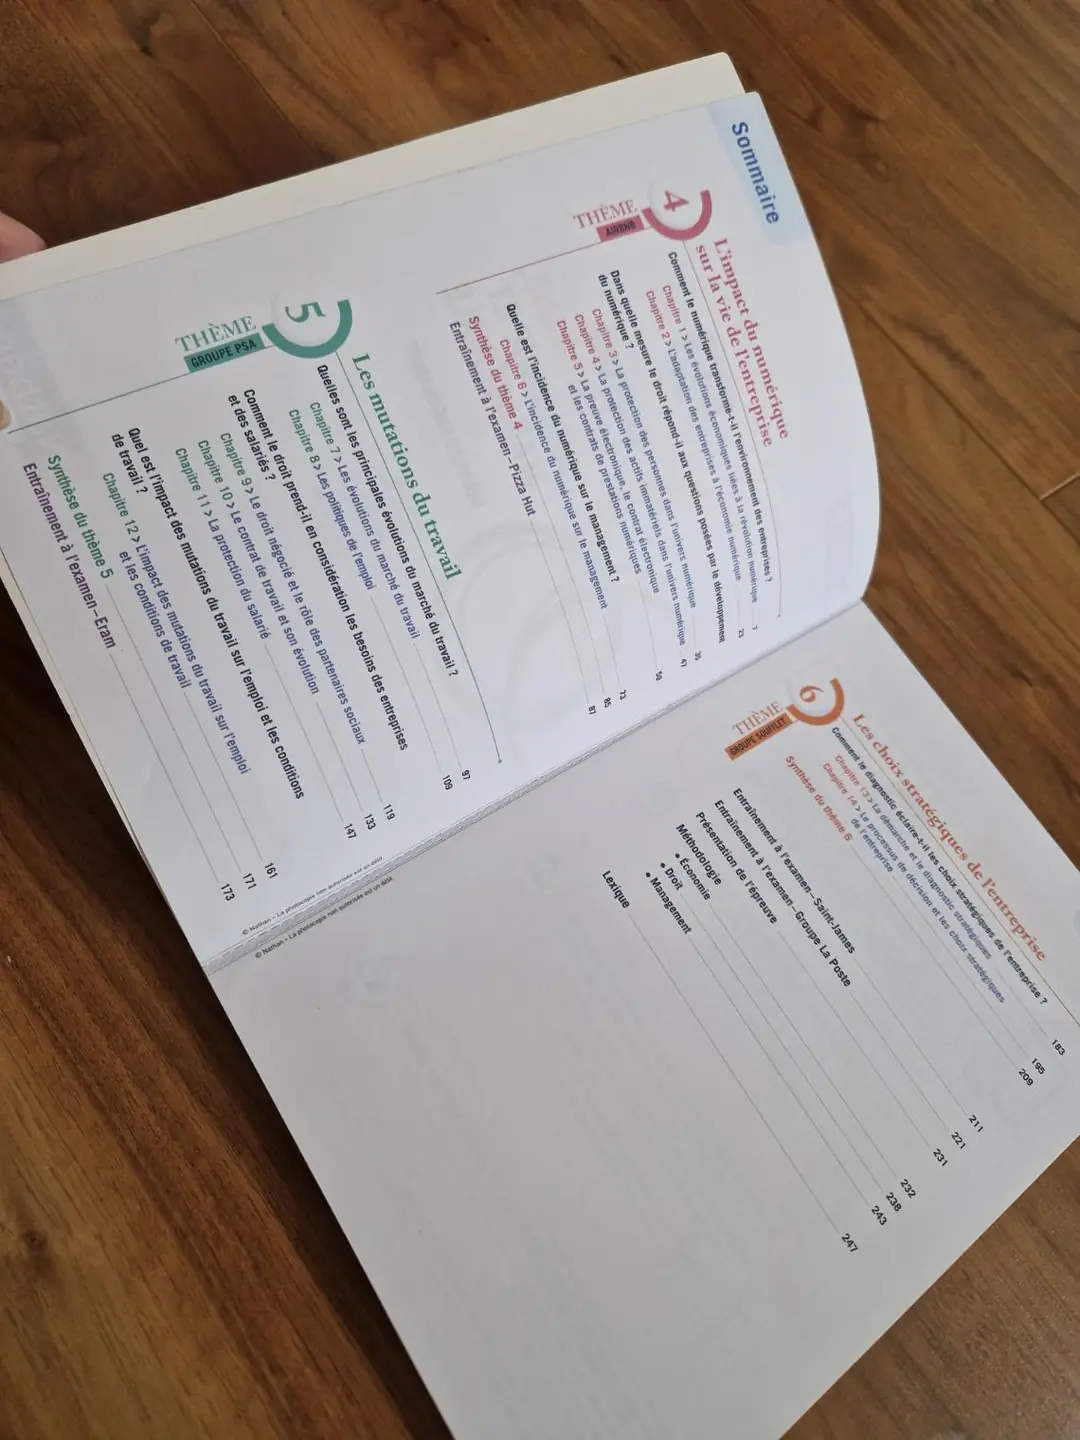 Sommaire
THÈME 4
AIRBNB
L'impact du numérique
sur la vie de l'entreprise
Comment le numérique transforme-t-il l'environnement des entreprises ?
Chapitre 1 > Les évolutions économiques liées à la révolution numérique 7
Chapitre 2 > L'adaptation des entreprises à l'économie numérique 23
Dans quelle mesure le droit répond-il aux questions posées par le développement
du numérique ?
Chapitre 3 > La protection des personnes dans l'univers numérique 35
Chapitre 4 > La protection des actifs immatériels dans l'univers numérique 47
Chapitre 5 > La preuve électronique, le contrat électronique
et les contrats de prestations numériques 59
Quelle est l'incidence du numérique sur le management ?
Chapitre 6 > L'incidence du numérique sur le management 73
Synthèse du thème 4 85
Entraînement à l'examen – Pizza Hut 87
THÈME 5
GROUPE PSA
Les mutations du travail
Quelles sont les principales évolutions du marché du travail ?
Chapitre 7 > Les évolutions du marché du travail 97
Chapitre 8 > Les politiques de l'emploi 109
Comment le droit prend-il en considération les besoins des entreprises
et des salariés ?
Chapitre 9 > Le droit négocié et le rôle des partenaires sociaux 119
Chapitre 10 > Le contrat de travail et son évolution 133
Chapitre 11 > La protection du salarié 147
Quel est l'impact des mutations du travail sur l'emploi et les conditions
de travail ?
Chapitre 12 > L'impact des mutations du travail sur l'emploi
et les conditions de travail 161
Synthèse du thème 5 171
Entraînement à l'examen – Eram 173
© Nathan – La photocopie non autorisée est un délit
THÈME 6
GROUPE SOUFFLET
Les choix stratégiques de l'entreprise
Comment le diagnostic éclaire-t-il les choix stratégiques de l'entreprise ?
Chapitre 13 > La démarche et le diagnostic stratégiques 183
Chapitre 14 > Le processus de décision et les choix stratégiques
de l'entreprise 195
Synthèse du thème 6 209
Entraînement à l'examen – Saint-James 211
Entraînement à l'examen – Groupe La Poste 221
Présentation de l'épreuve 231
Méthodologie
• Économie 232
• Droit 238
• Management 243
Lexique 247
© Nathan – La photocopie non autorisée est un délit